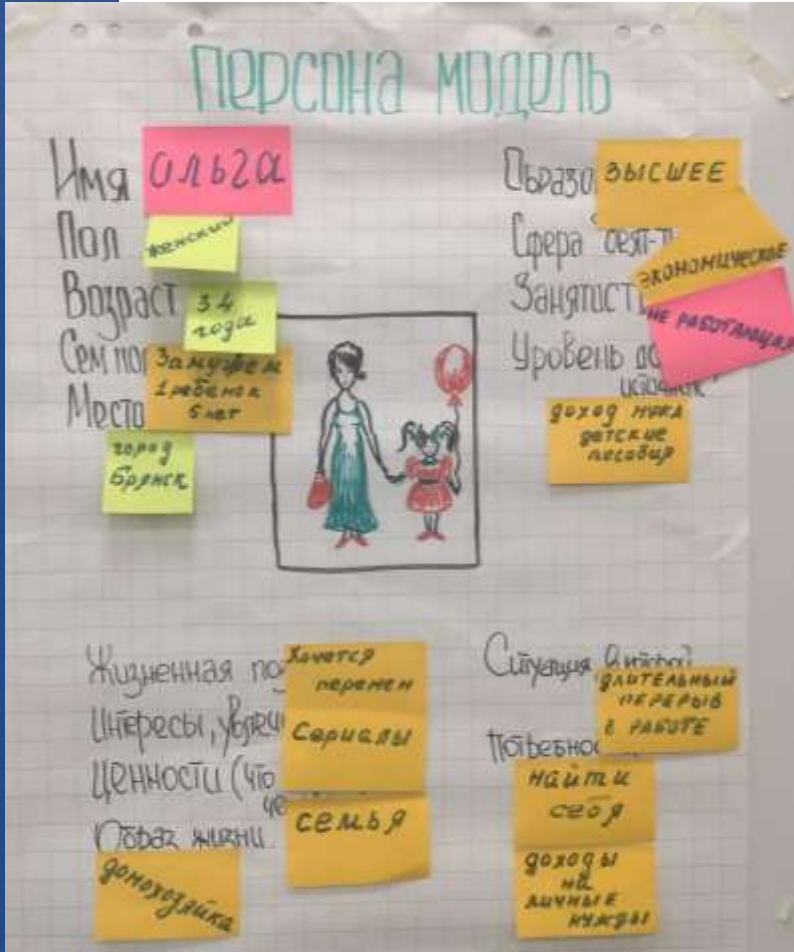 ПЕРСОНА МОДЕЛЬ
Имя ОЛЬГА
Пол женский
Возраст 34 года
Сем пол Замужем 1 ребенок 5 лет
Место город Брянск
Образо ВЫСШЕЕ
Сфера деят-т ЭКОНОМИЧЕСКОЕ
Занятист НЕ РАБОТАЮЩАЯ
Уровень до источник
доход мужа
детские
пособия
Жизненная поз Хочется перемен
Интересы, увлеч Сериалы
Ценности (что семья
Образ жизни
домохозяйка
Ситуация в которой
ДЛИТЕЛЬНЫЙ
ПЕРЕРЫВ
В РАБОТЕ
Потребнос
найти
себя
доходы
на
личные
нужды